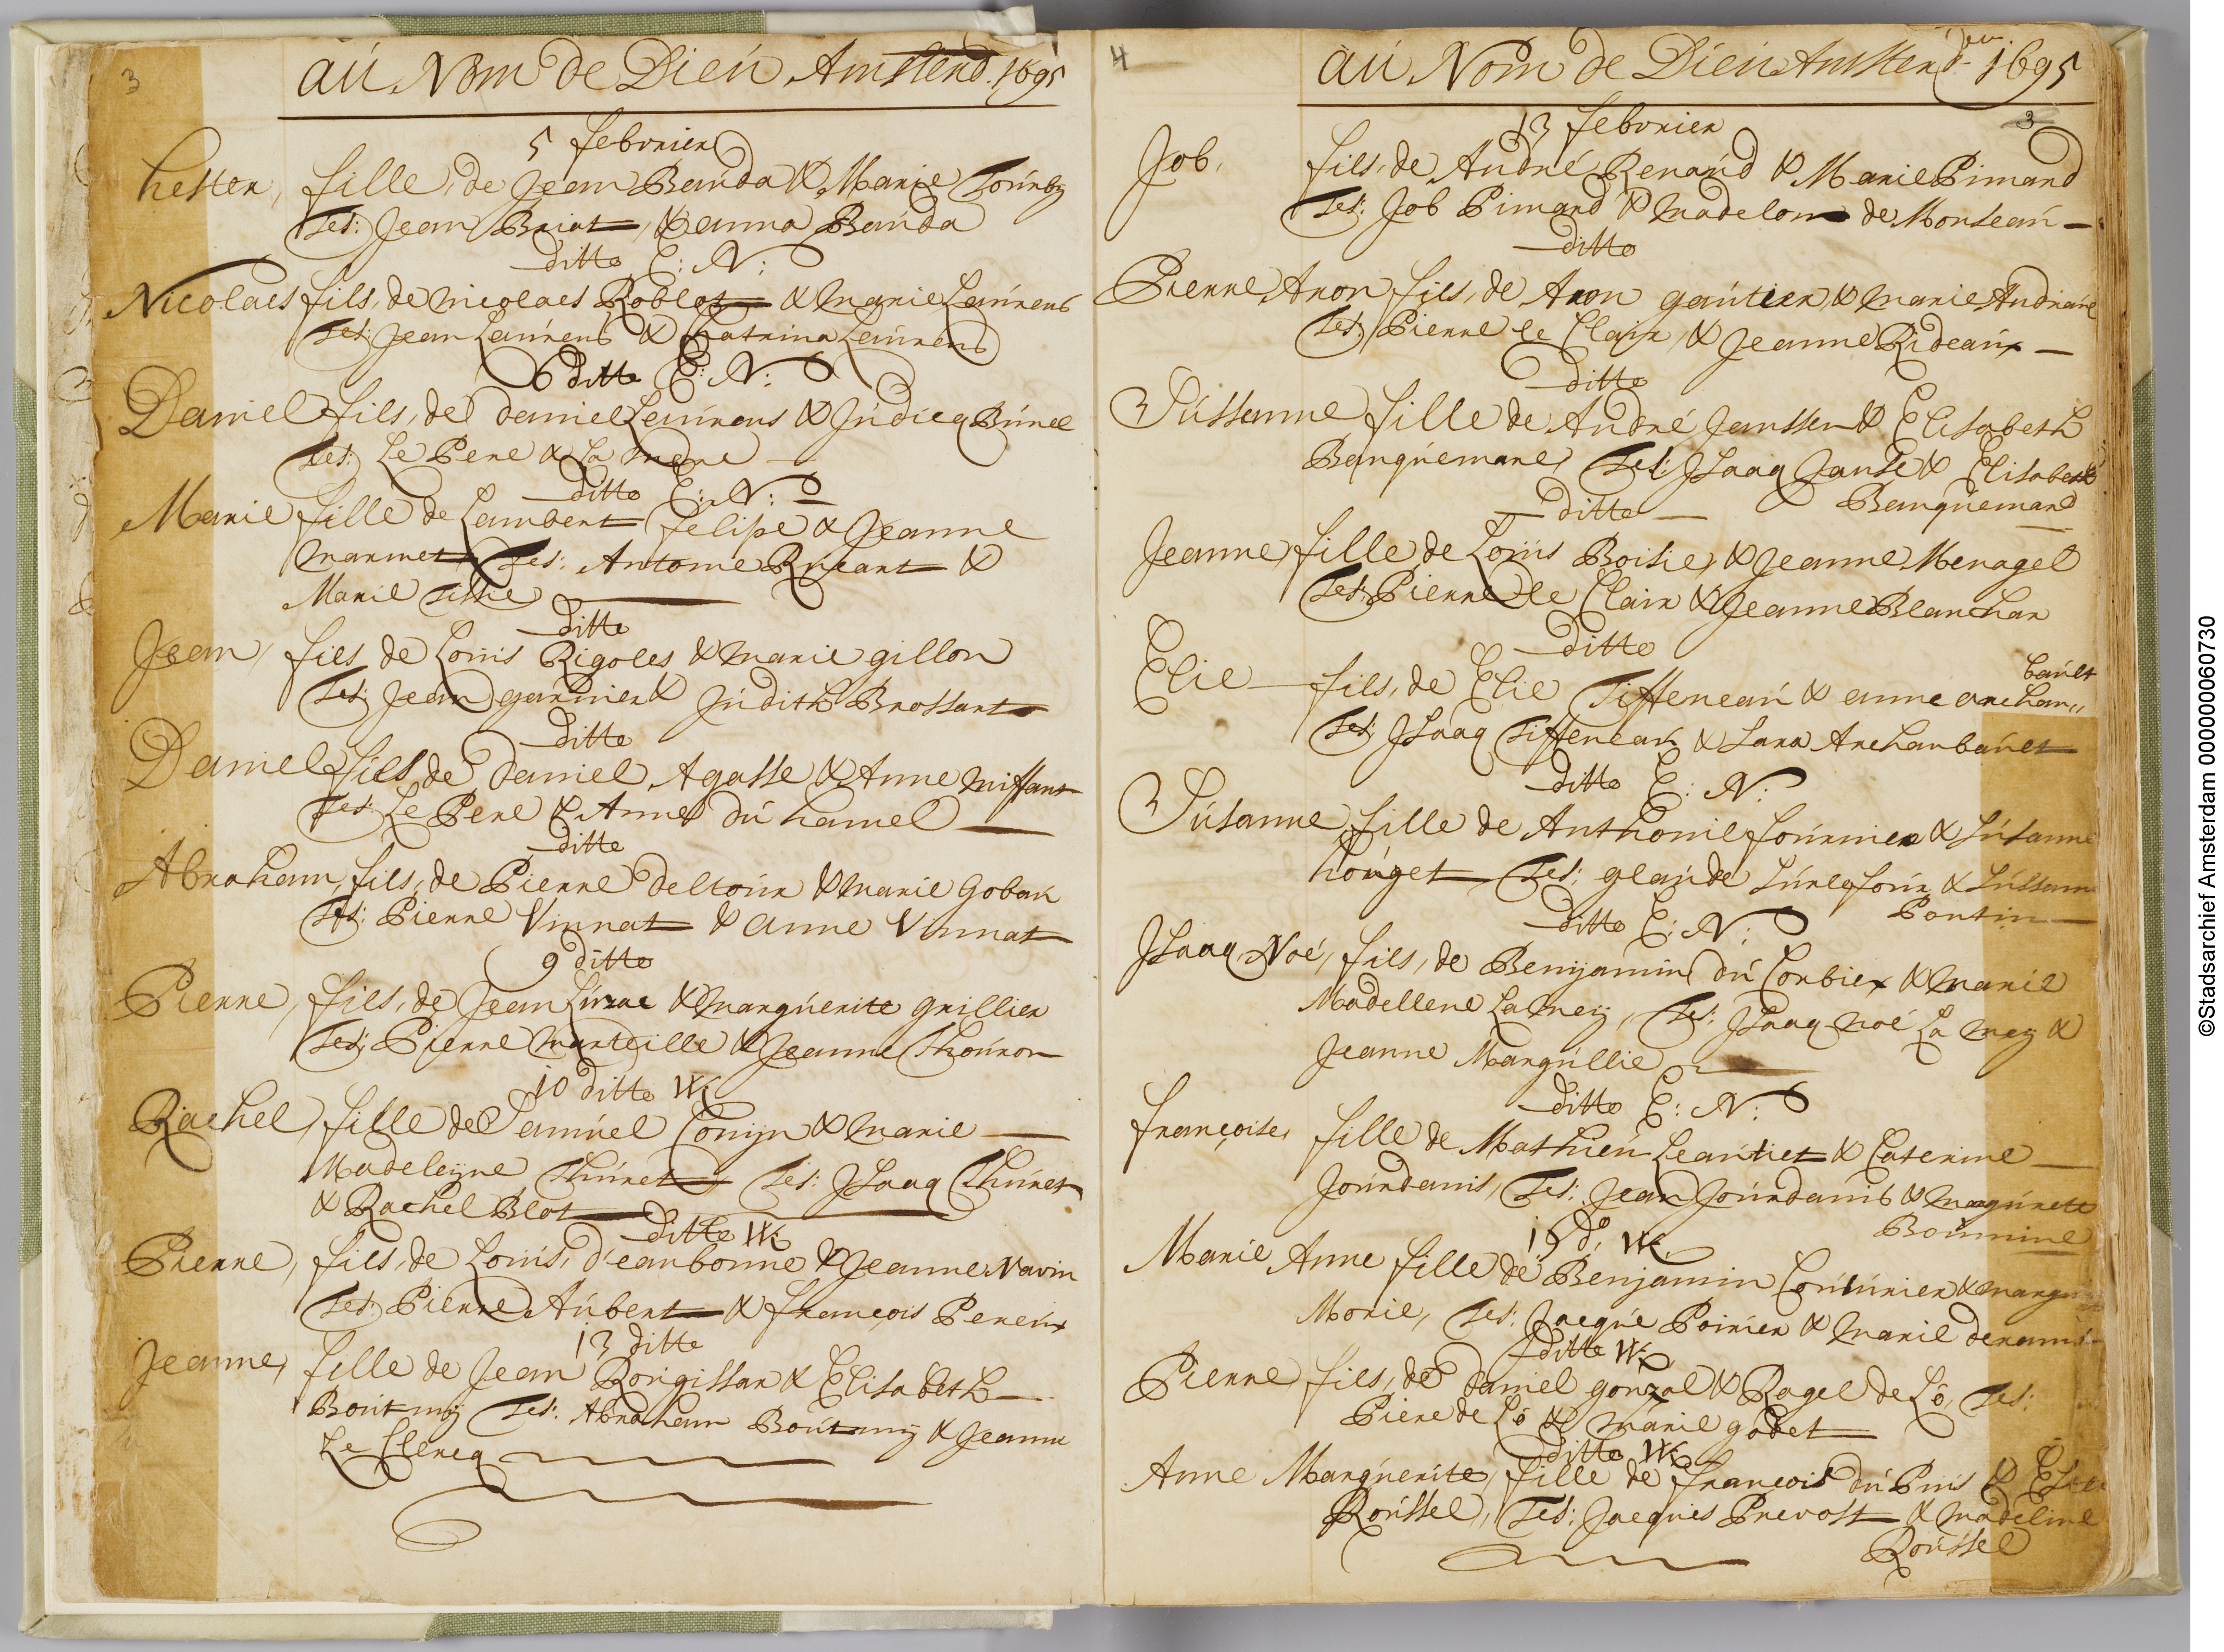 3
au Nom de Dieu Amsterd. 1695
5 febvrier
hester, fille, de Jean Bauda & Marie Tournby
Tes: Jean Briat, & anna Bauda
ditto E: N:
Nicolaes fils, de nicolaes Roblot & marie Laurens
Tes: Jean Laurens & Catrina Laurens
6 ditto E: N:
Daniel fils, de daniel Laurens & Judicq Bunel
Tes: Le Pere & La mere
ditto E: N:
Marie fille de Lambert felipe & Jeanne
marmet Tes: Antome Rucart &
Marie
ditto
Jean, fils de Louis Rigoles & marie gillon
Tes: Jean garnier & Judith Brossart
ditto
Daniel fils de daniel Agasse & Anne miffant
Tes: Le Pere & Anne du hamel
ditto
Abraham, fils, de Pierre deltour & marie Gobar
Tes: Pierre Vinnat & anne Vinnat
9 ditto
Pierre, fils, de Jean Luzac & marguerite grillier
Tes: Pierre marteille & Jeanne Thouron
10 ditto W:
Rachel, fille de Samuel Conijn & marie
Madeleijne Thuret Tes: Isaaq Thuret
& Rachel Blot
ditto W:
Pierre, fils, de Louis, d'eanbonne & Jeanne Navin
Tes: Pierre Aubert & françois Pereux
13 ditto
Jeanne, fille de Jean Rougissar & Elisabeth
Boutmij Tes: Abraham Boutmij & Jeanne
Le Clercq
4
au Nom de Dieu Amsterd. 1695
3
13 febvrier
Job, fils, de André Renaud & Marie Pimard
Tes: Job Pimard & madelon de Monseau
ditto
Pierre Aron fils, de Aron gautier, & marie Andriane
Tes: Pierre le Clair, & Jeanne Rideaux
ditto
Sussanne fille de André Janssen & Elisabeth
Banquemare, Tes: Isaaq Janse & Elisabeth
Banquemard
ditto
Jeanne, fille de Louis Boisie, & Jeanne Menagel
Tes: Pierre le Clair & Jeanne Blanchar
ditto
Elie fils, de Elie Tiffeneau & anne archam,,
bault
Tes: Isaaq Tiffeneau & Sara Archambault
ditto E: N:
Susanne fille de Anthonie fournier & Susanne
houget Tes: glaude & Sussanne
Pontin
ditto E: N:
Isaaq Noé, fils, de Benijamin du Corbier & marie
Madellene Lameij, Tes: Isaaq noé La meij &
Jeanne Margullie
ditto E: N:
françoise, fille de Mathieu Leautiet & Caterine
Jourdanis, Tes: Jean Jourdanis & marguerette
Boumine
19 do, W:
Marie Anne fille de Benjamin Couturier &
Morie, Tes: Jacque Poirier & marie
ditto W:
Pierre fils, de daniel gonzal & Ragel de Lo, Tes:
Piere de Lo & marie godet
ditto W:
Anne Marguerite, fille de françois du Puis &
Roussel, Tes: Jacques Prevost & madeline
Roussel
©Stadsarchief Amsterdam 000000060730